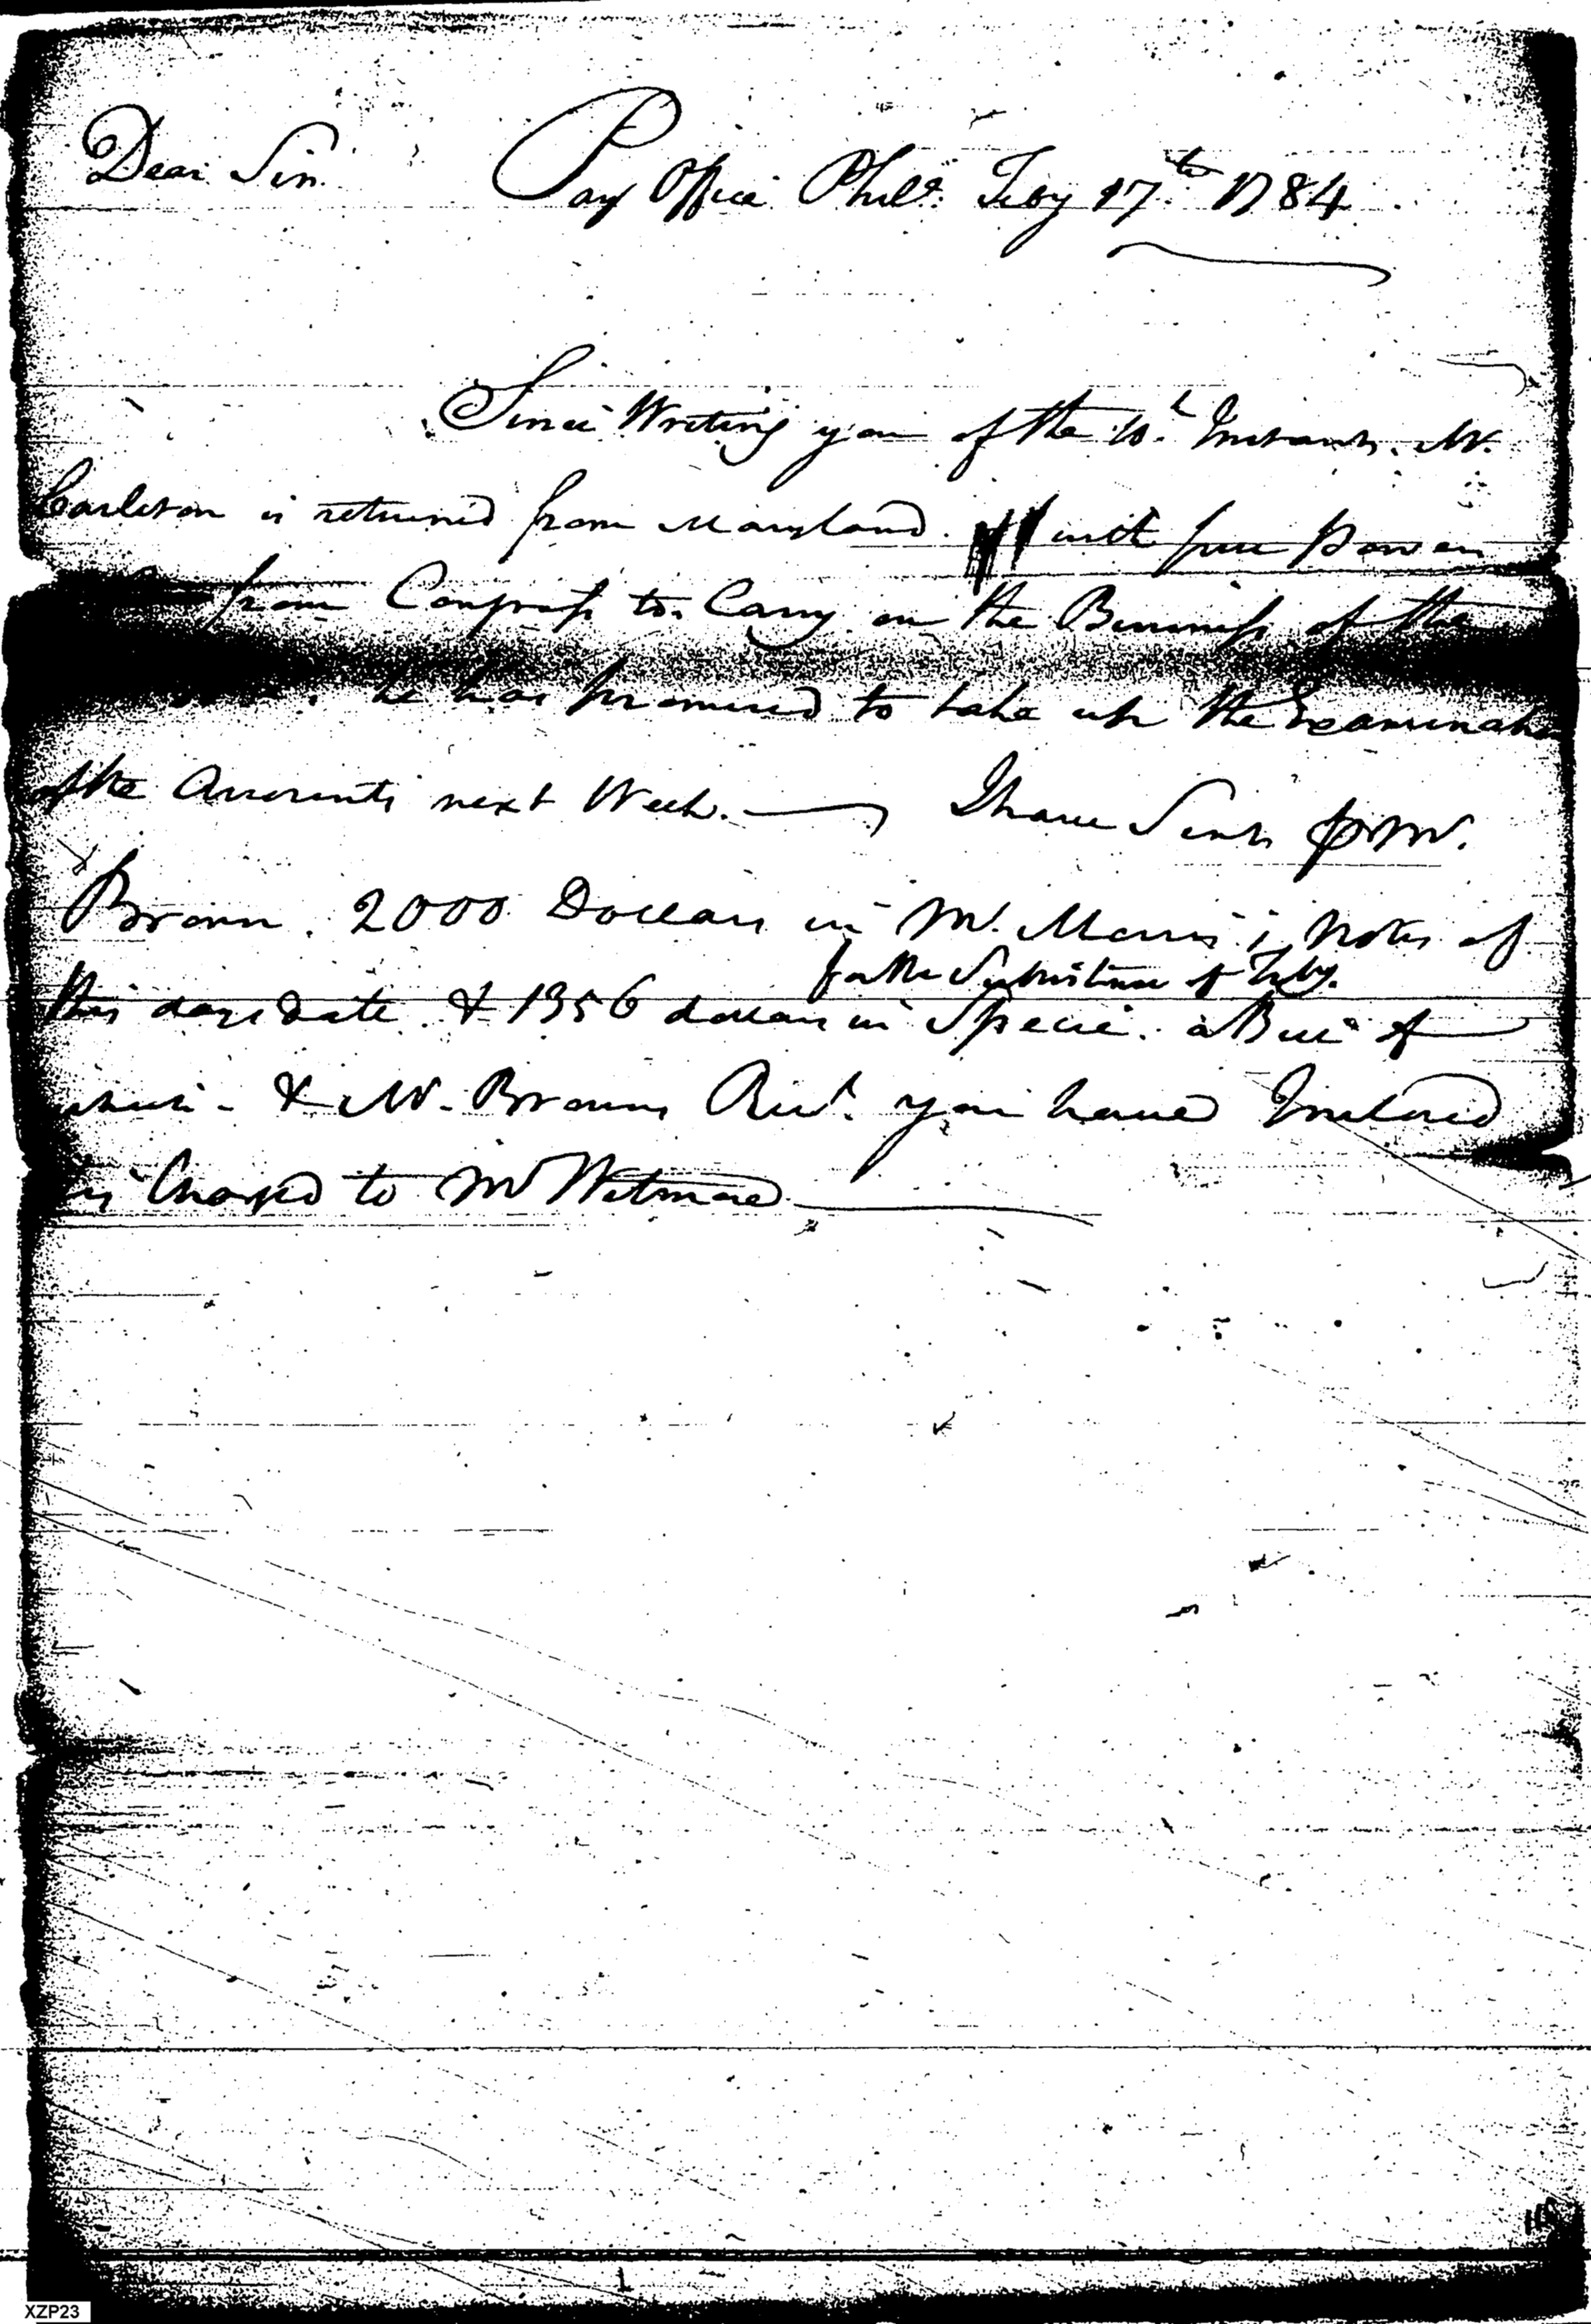 Dear Sir
Pay Office Phila. Feby 17th 1784
Since Writing you of the 10th Instant. Mr.
Carleton is returned from Maryland. with full Power
from Congress to Carry on the Business of the
he has promised to take up the Examination
of the Accounts next Week. — I have Sent ⅌ Mr.
Brown. 2000 Dollars in Mr. Morris's Notes of
for the Subsistence of Feby.
this days date. & 1356 dollars in Specie. a Bill of
which - & Mr. Browns Rect. you have Inclosed
Charged to Mr Wetmore
116
XZP23